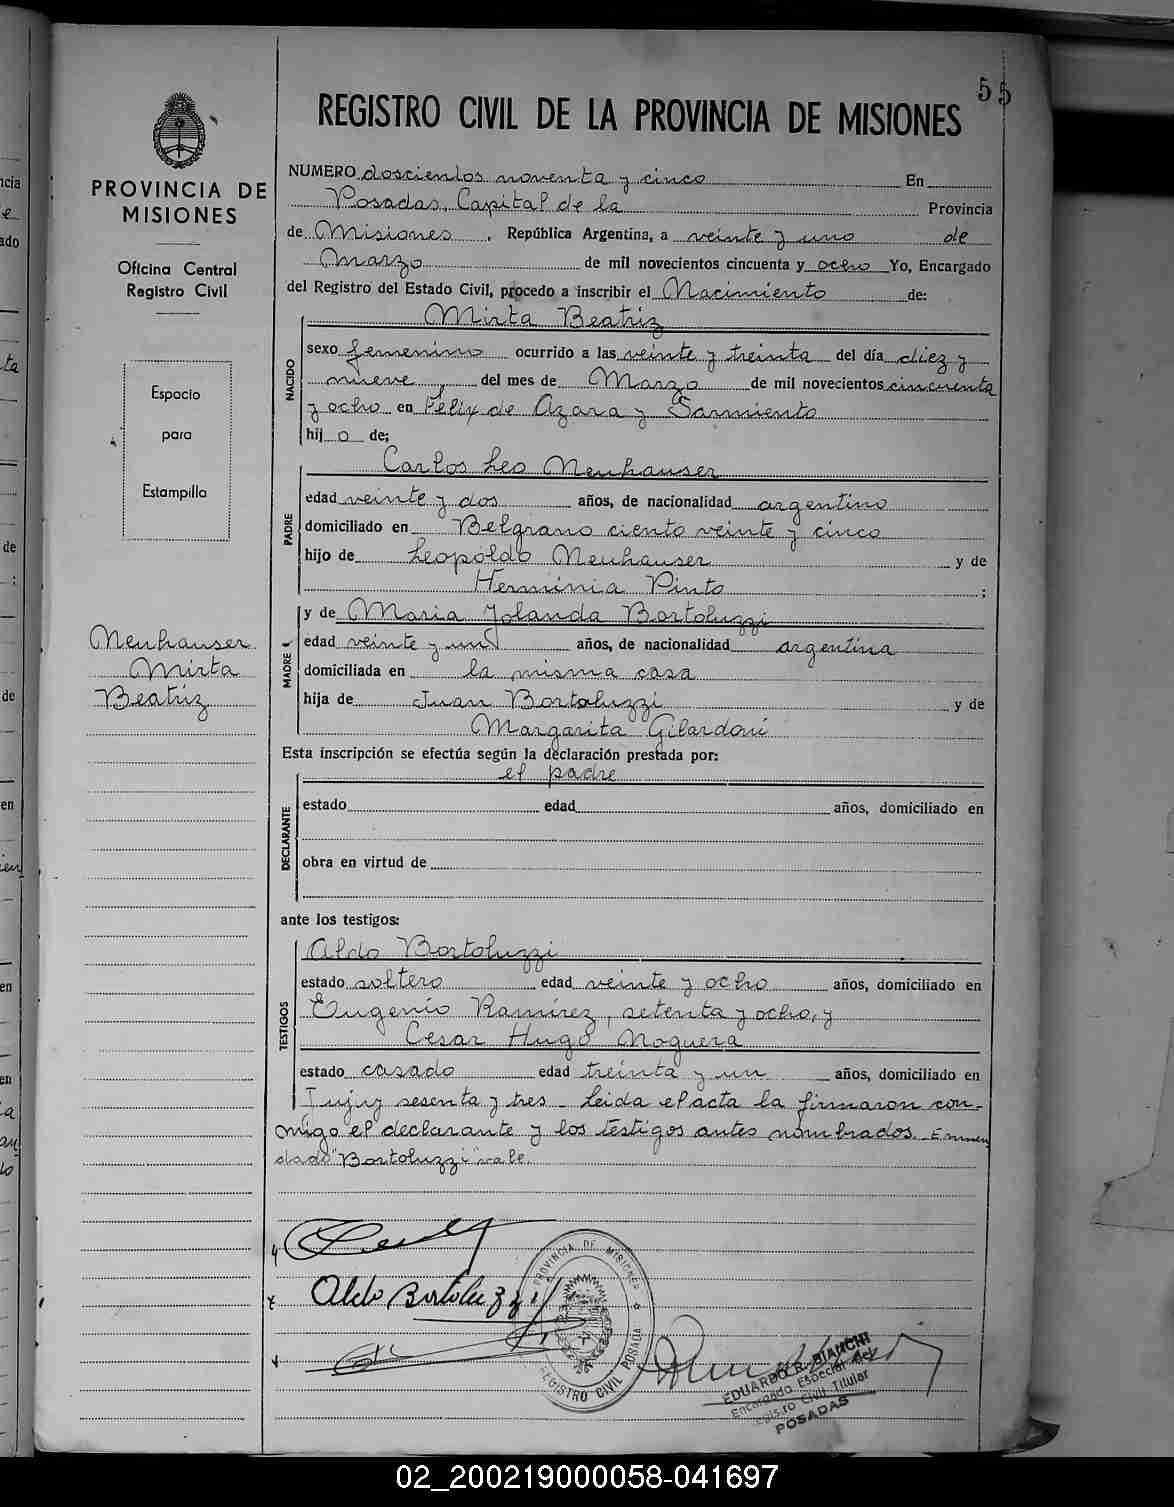 55
REGISTRO CIVIL DE LA PROVINCIA DE MISIONES
PROVINCIA DE
MISIONES
Oficina Central
Registro Civil
Espacio
para
Estampilla
Neuhauser
Mirta
Beatriz
NUMERO doscientos noventa y cinco En
Posadas, Capital de la Provincia
de Misiones, República Argentina, a veinte y uno de
Marzo de mil novecientos cincuenta y ocho Yo, Encargado
del Registro del Estado Civil, procedo a inscribir el Nacimiento de:
Mirta Beatriz
NACIDO
sexo femenino ocurrido a las veinte y treinta del día diez y
nueve, del mes de Marzo de mil novecientos cincuenta
y ocho en Félix de Azara y Sarmiento
hij o de;
Carlos Leo Neuhauser
PADRE
edad veinte y dos años, de nacionalidad argentino
domiciliado en Belgrano ciento veinte y cinco
hijo de Leopoldo Neuhauser y de
Herminia Pinto ;
y de Maria Yolanda Bortoluzzi
MADRE
edad veinte y un años, de nacionalidad argentina
domiciliada en la misma casa
hija de Juan Bortoluzzi y de
Margarita Gilardoni
Esta inscripción se efectúa según la declaración prestada por:
el padre
DECLARANTE
estado edad años, domiciliado en
obra en virtud de
ante los testigos:
Aldo Bortoluzzi
TESTIGOS
estado soltero edad veinte y ocho años, domiciliado en
Eugenio Ramirez, setenta y ocho, y
Cesar Hugo Noguera
estado casado edad treinta y un años, domiciliado en
Jujuy sesenta y tres - Leida el acta la firmaron con-
migo el declarante y los testigos antes nombrados. Enmen
dado "Bortoluzzi" vale.
Aldo Bortoluzzi
PROVINCIA DE MISIONES
REGISTRO CIVIL POSADAS
EDUARDO R. BIANCHI
Encargado Especial del
Registro Civil Titular
POSADAS
02_200219000058-041697